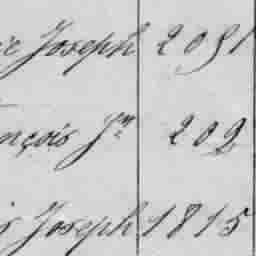 ie Joseph 2091
nçois Jn 202
s Joseph 1815